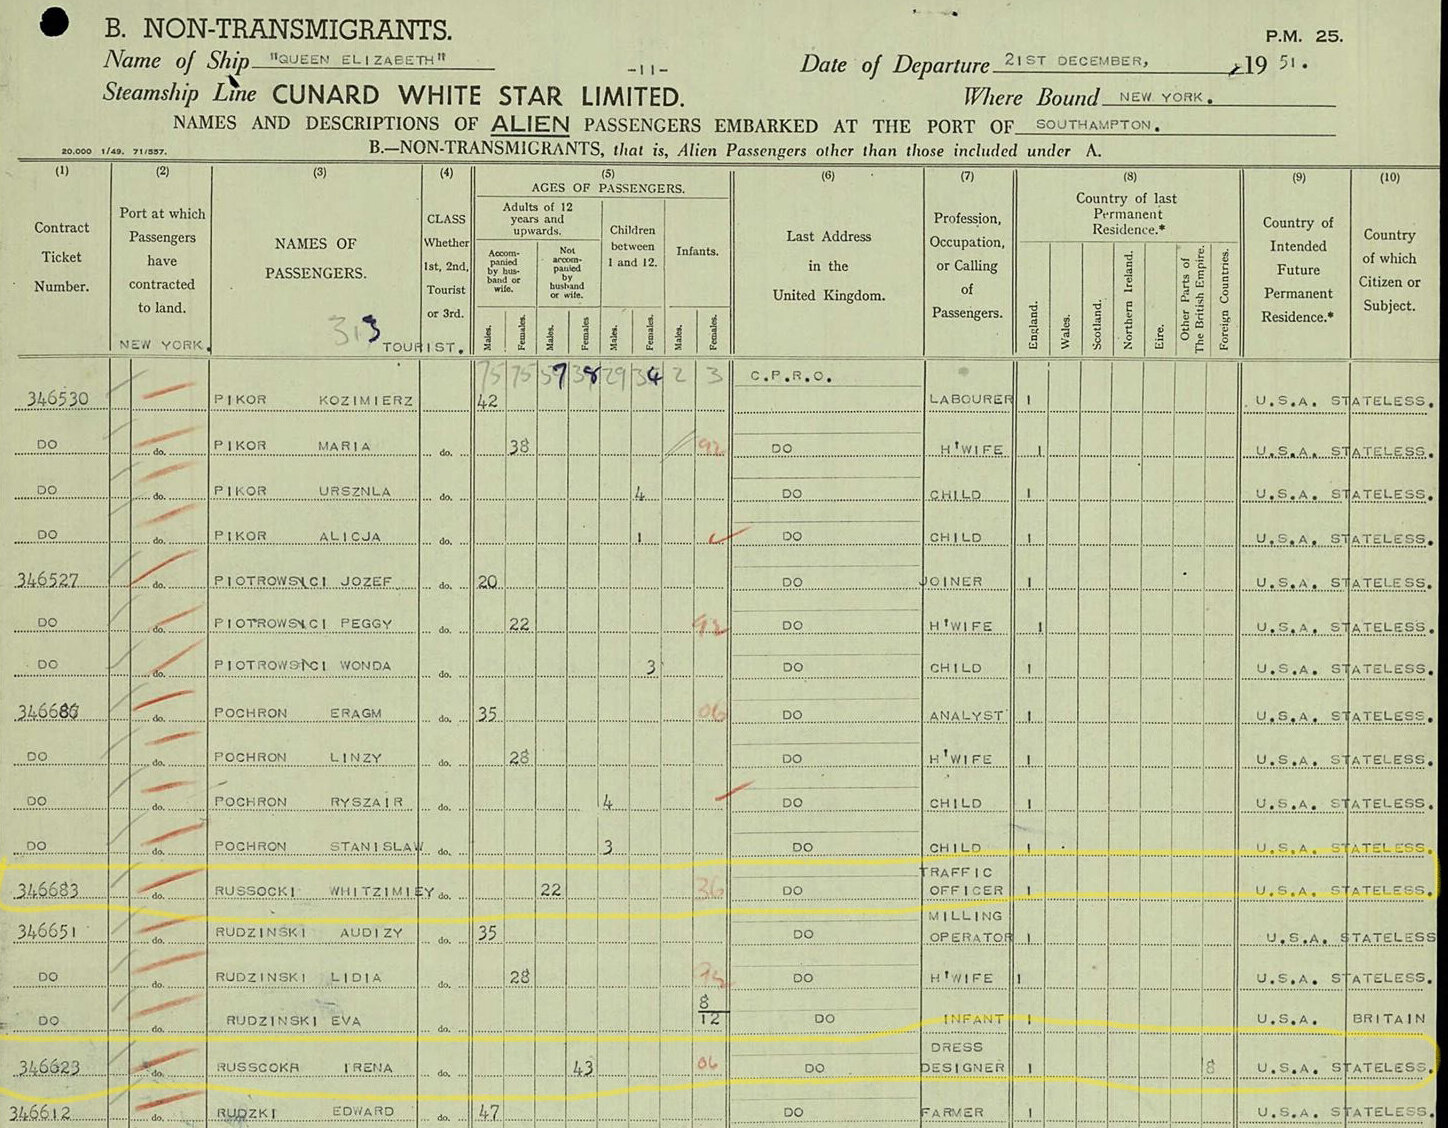 B. NON-TRANSMIGRANTS.
P.M. 25.
Name of Ship "QUEEN ELIZABETH"
-11-
Date of Departure 21ST DECEMBER, 19 51.
Steamship Line CUNARD WHITE STAR LIMITED.
Where Bound NEW YORK.
NAMES AND DESCRIPTIONS OF ALIEN PASSENGERS EMBARKED AT THE PORT OF SOUTHAMPTON.
20.000 1/49. 71/557.
B.—NON-TRANSMIGRANTS, that is, Alien Passengers other than those included under A.
(1) (2) (3) (4) (5) (6) (7) (8) (9) (10)
Contract Ticket Number.
Port at which Passengers have contracted to land.
NAMES OF PASSENGERS.
CLASS Whether 1st, 2nd, Tourist or 3rd.
AGES OF PASSENGERS.
Adults of 12 years and upwards.
Accompanied by husband or wife.
Not accompanied by husband or wife.
Children between 1 and 12.
Infants.
Males. Females. Males. Females. Males. Females. Males. Females.
Last Address in the United Kingdom.
Profession, Occupation, or Calling of Passengers.
Country of last Permanent Residence.*
England. Wales. Scotland. Northern Ireland. Eire. Other Parts of The British Empire. Foreign Countries.
Country of Intended Future Permanent Residence.*
Country of which Citizen or Subject.
313
NEW YORK. TOURIST.
75 75 57 38 29 34 2 3 C.P.R.O.
346530 PIKOR KOZIMIERZ 42 LABOURER 1 U.S.A. STATELESS.
DO do. PIKOR MARIA do. 38 92 DO H'WIFE 1 U.S.A. STATELESS.
DO do. PIKOR URSZNLA do. 4 DO CHILD 1 U.S.A. STATELESS.
DO do. PIKOR ALICJA do. 1 DO CHILD 1 U.S.A. STATELESS.
346527 do. PIOTROWSICI JOZEF do. 20 DO JOINER 1 U.S.A. STATELESS.
DO do. PIOTROWSICI PEGGY do. 22 92 DO H'WIFE 1 U.S.A. STATELESS.
DO do. PIOTROWSICI WONDA do. 3 DO CHILD 1 U.S.A. STATELESS.
do. POCHRON ERAGM do. 35 06 DO ANALYST 1 U.S.A. STATELESS.
DO do. POCHRON LINZY do. 28 DO H'WIFE 1 U.S.A. STATELESS.
DO do. POCHRON RYSZAIR do. 4 DO CHILD 1 U.S.A. STATELESS.
DO do. POCHRON STANISLAW do. 3 DO CHILD 1 U.S.A. STATELESS.
346683 do. RUSSOCKI WHITZIMIEY do. 22 36 DO TRAFFIC OFFICER 1 U.S.A. STATELESS.
346651 do. RUDZINSKI AUDIZY do. 35 DO MILLING OPERATOR 1 U.S.A. STATELESS
DO do. RUDZINSKI LIDIA do. 28 DO H'WIFE 1 U.S.A. STATELESS.
DO do. RUDZINSKI EVA do. 8/12 DO INFANT 1 U.S.A. BRITAIN
346623 do. RUSSCOKA IRENA do. 43 06 DO DRESS DESIGNER 1 8 U.S.A. STATELESS.
346612 do. RUDZKI EDWARD do. 47 DO FARMER 1 U.S.A. STATELESS.